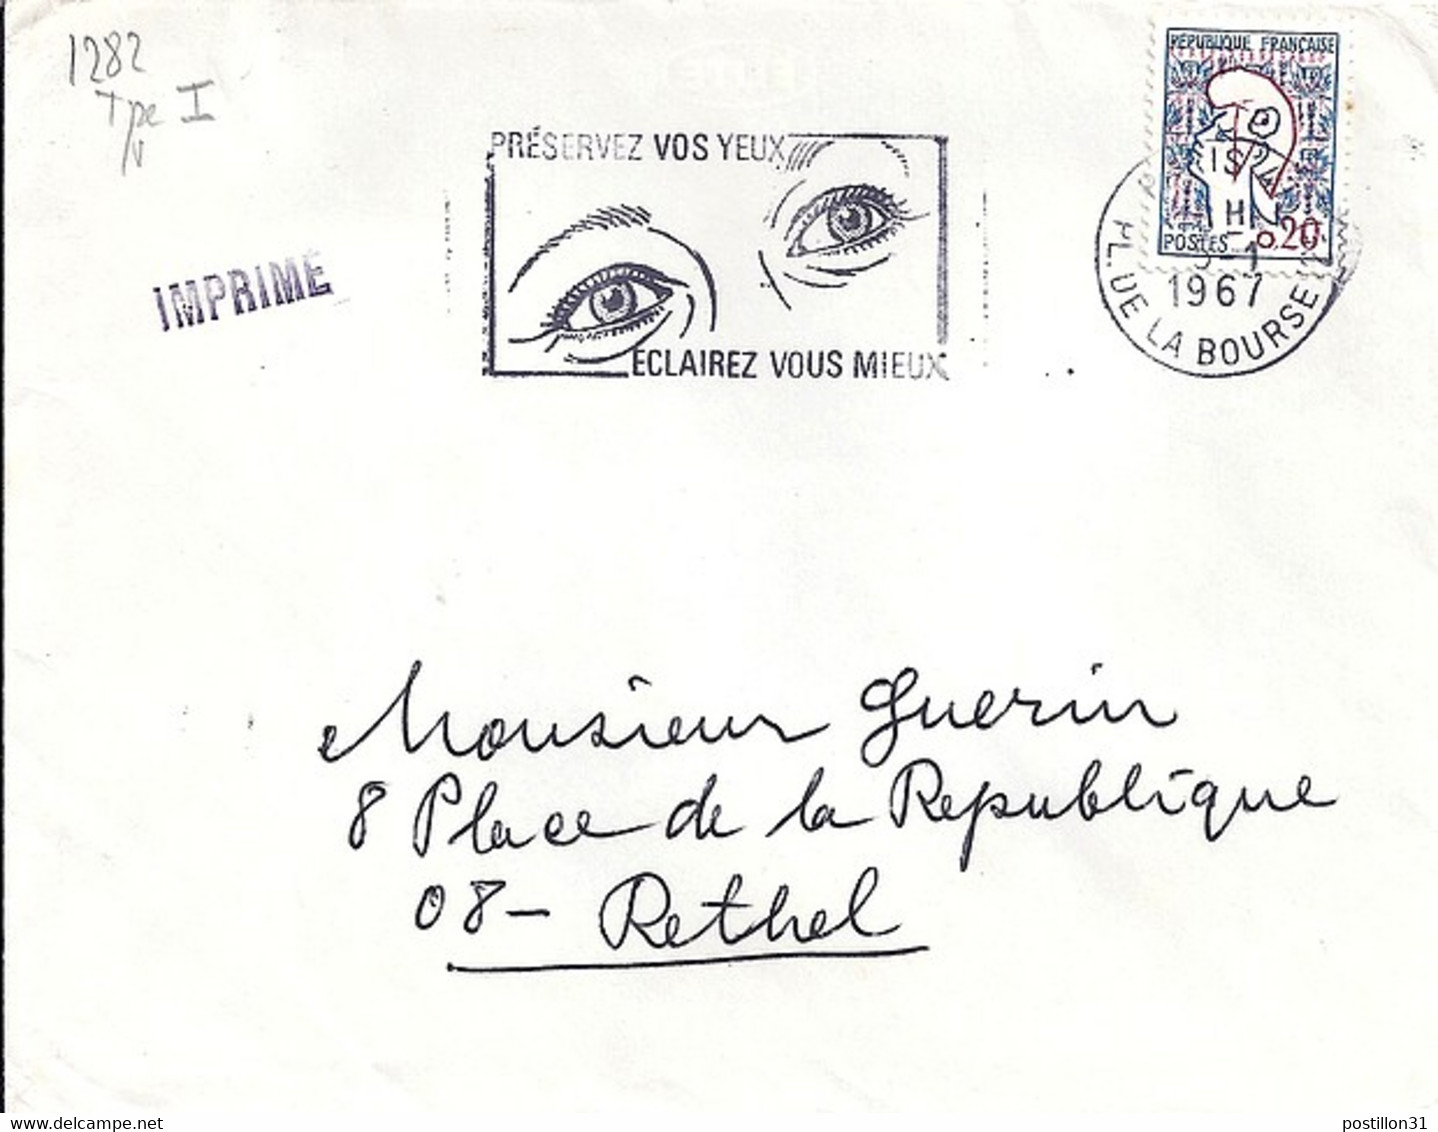 1282
Type I
IMPRIMÉ
PRÉSERVEZ VOS YEUX
ECLAIREZ VOUS MIEUX
REPUBLIQUE FRANÇAISE
POSTES 0,20
IS
H
1967
PL. DE LA BOURSE
Monsieur Guerin
8 Place de la Republique
08 - Rethel
postillon31